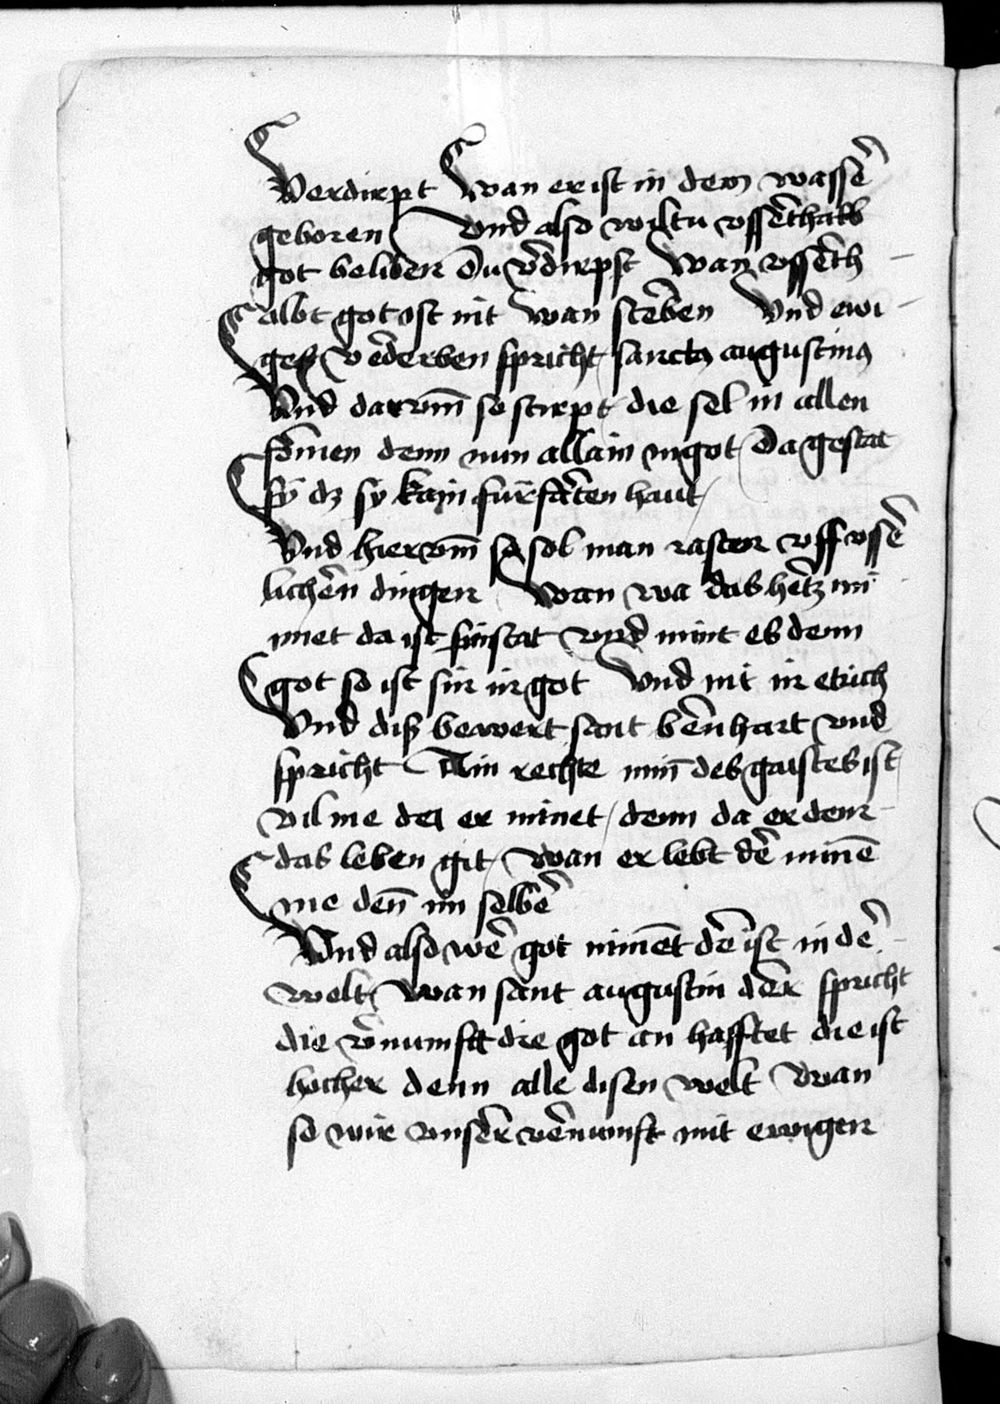 Verdirpt Wan er ist in dem wassē
geboren Vnd also wiltu vssēthalb
got beliben Du v̄dirpst Wan vssēth
albt got ist nit wan stērben Vnd ewi
ges v̄derben spricht sanctus augustinus
Vnd darvm̄ so stirpt die sel in allen
denn nun allain in got Da gestat
sy dz sy kain fūrfarten haut
Vnd hiervm̄ so sol man rasten vff vssē
lichen dingen Wan wa das hētz mi
nnet da ist sin stat vnd mint es denn
got so ist sin in got Vnd nit in ertrich
Vnd diß bewert sant bēnhart vnd
spricht Ain rechte min̄ des gaistes ist
vil me da er minet denn da er dem
das leben git Wan er lebt dē minē
me den̄ im selbē
Vnd also wē got minēt dē ist in dē
welt Wan sant augustin der spricht
die v̄nunfft die got an hafftet die ist
hocher denn alle disen welt Wan
so wir vnser vēnunft mit ewigen